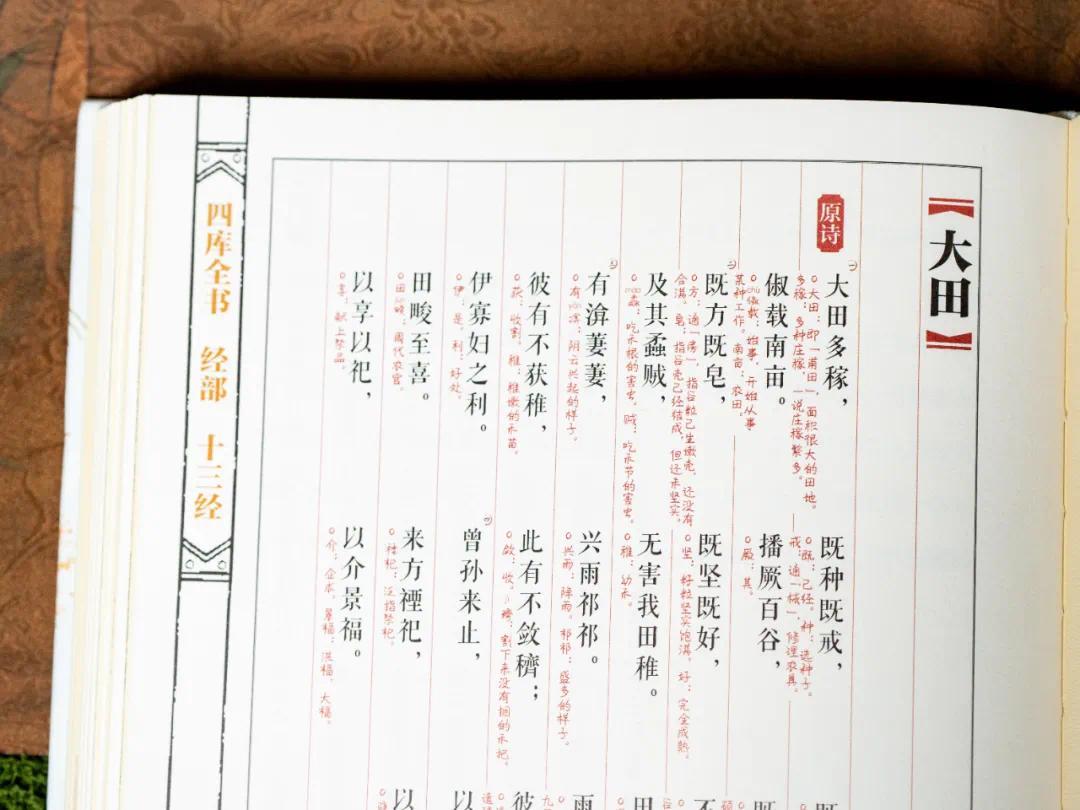 【大田】
原诗
大田多稼，
既种既戒，
既
○大田：即“甫田”，面积很大的田地。
多稼：多种庄稼，一说庄稼繁多。
○既：已经。种：选种子。
戒：通“械”，修理农具。
俶载南亩。
播厥百谷，
既
○俶载：始事，开始从事
某种工作。南亩：农田。
○厥：其。
既方既皂，
既坚既好，
不
○方：通“房”，指谷粒已生嫩壳，还没有
合满。皂：指谷壳已经结成，但还未坚实。
○坚：籽粒坚实饱满。好：完全成熟。
及其蟊贼，
无害我田稚。
田
○蟊：吃禾根的害虫。贼：吃禾节的害虫。
○稚：幼禾。
有渰萋萋，
兴雨祁祁。
雨
○有渰：阴云兴起的样子。
○兴雨：降雨。祁祁：盛多的样子。
彼有不获稚，
此有不敛穧；
彼
○获：收割。稚：稚嫩的禾苗。
○敛：收。穧：割下来没有捆的禾把。
伊寡妇之利。
曾孙来止，
以
○伊：是。利：好处。
田畯至喜。
来方禋祀，
以
○田畯：周代农官。
○禋祀：泛指祭祀。
以享以祀，
以介景福。
○享：献上祭品。
○介：企求。景福：洪福，大福。
四库全书 经部 十三经